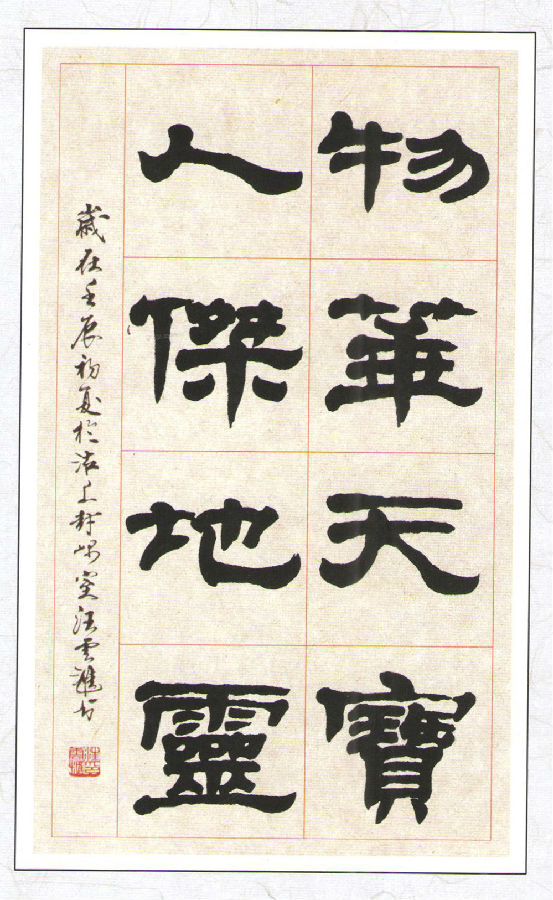 物華天寶
人傑地靈
歲在壬辰初夏於上室汪雲龍書